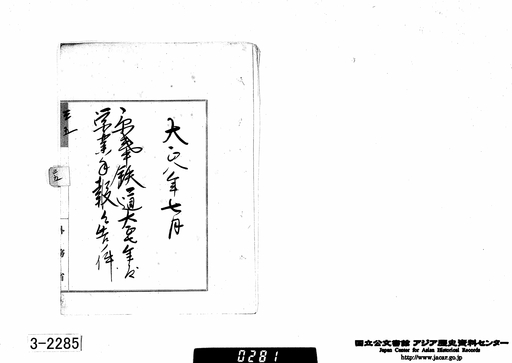 大正八年七月
京奉鉄道大正七年度
営業年報報告ノ件
三五
五
外務省
3-2285
0281
国立公文書館 アジア歴史資料センター
Japan Center for Asian Historical Records
http://www.jacar.go.jp